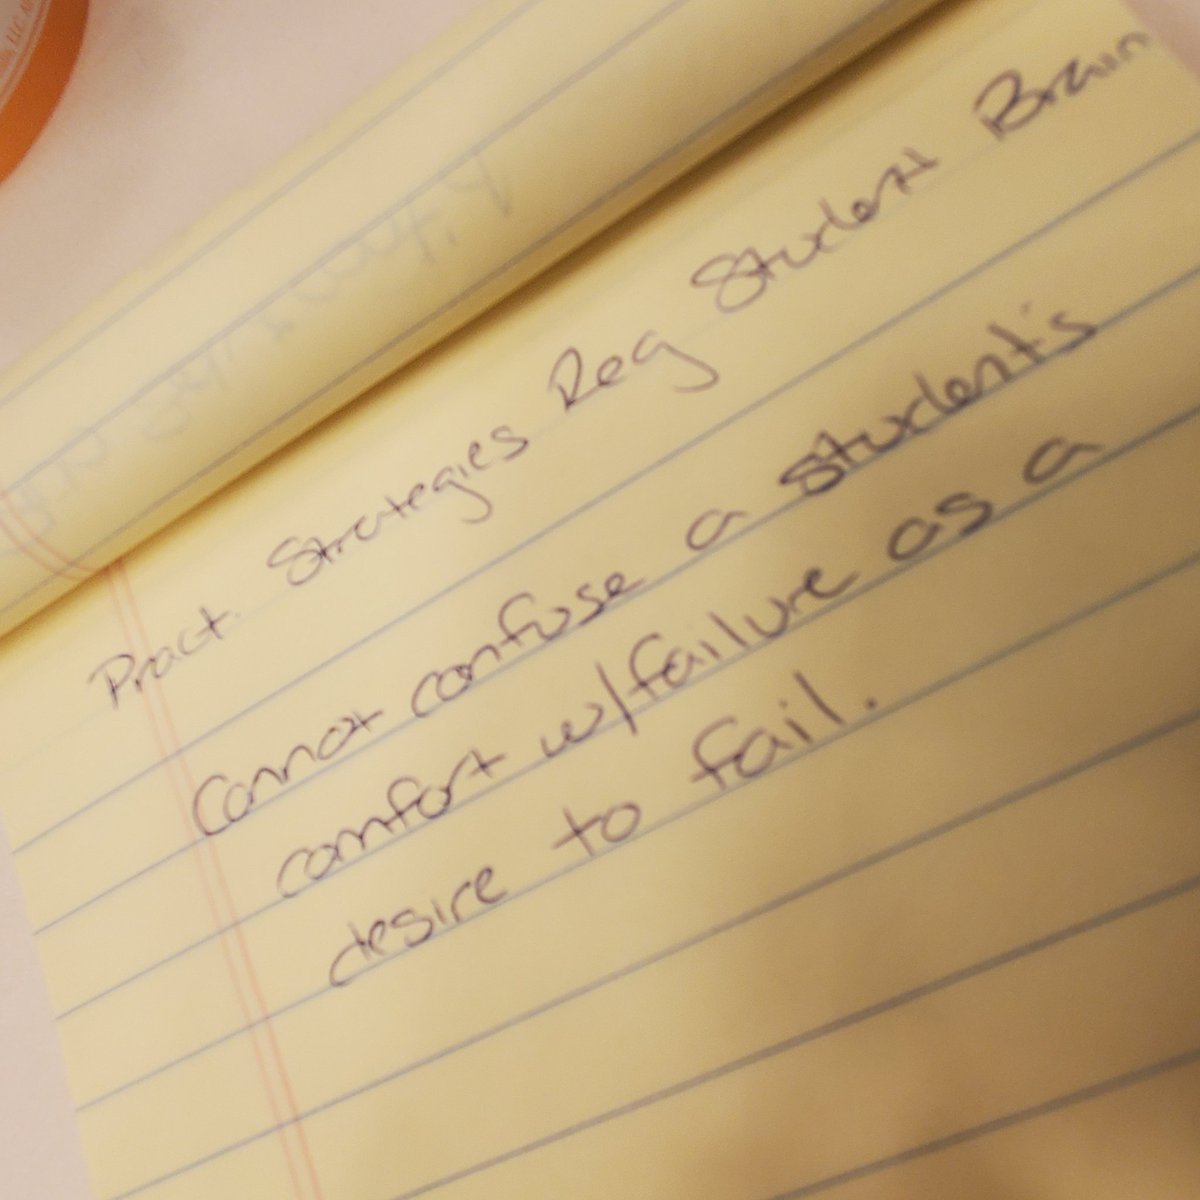 Pract. Strategies Reg Student Brain
Cannot confuse a student's
comfort w/failure as a
desire to fail.